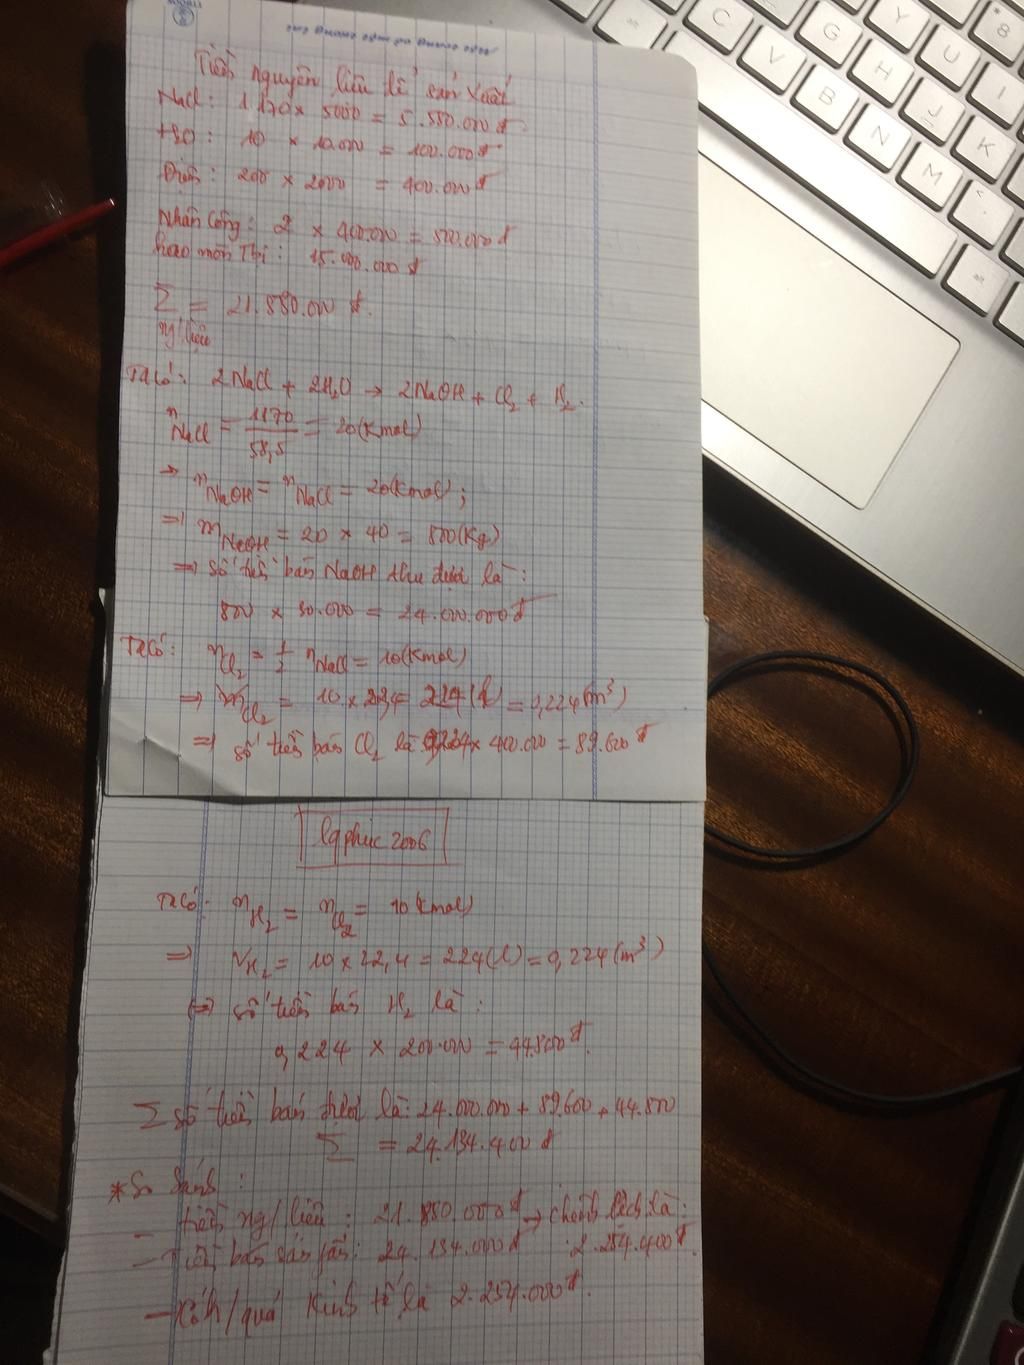 Tiền nguyên liệu để sản xuất
NaCl: 1.170 × 5000 = 5.850.000đ
H2O: 10 × 10.000 = 100.000đ
Điện: 200 × 2000 = 400.000đ
Nhân công: 2 × 400.000 = 800.000đ
hao mòn : 15.000.000đ
Σ = 21.880.000 đ.
ng/liệu
Ta có: 2NaCl + 2H₂O → 2NaOH + Cl₂ + H₂.
nNaCl = 1170/58,5 = 20(Kmol)
→ nNaOH = nNaCl = 20(Kmol);
⇒ mNaOH = 20 × 40 = 800(Kg)
⇒ số tiền bán NaOH thu được là:
800 × 30.000 = 24.000.000đ
Ta có: nCl₂ = 1/2 nNaCl = 10(Kmol)
⇒ mCl₂ = 10 × 22,4 224(l) = 0,224(m³)
⇒ số tiền bán Cl₂ là 0,224 × 400.000 = 89.600đ
lqphuc2006
Ta có: nH₂ = nCl₂ = 10(Kmol)
⇒ VH₂ = 10 × 22,4 = 224(l) = 0,224(m³)
⇔ số tiền bán H₂ là:
0,224 × 200.000 = 44.800đ.
Σ số tiền bán được là: 24.000.000 + 89.600 + 44.800
Σ = 24.134.400đ
* So sánh:
- tiền ng/liệu: 21.880.000đ → chênh lệch là:
- Tiền bán sản phẩm: 24.134.000đ 2.254.400đ.
- Kết/quả kinh tế là 2.254.000đ.